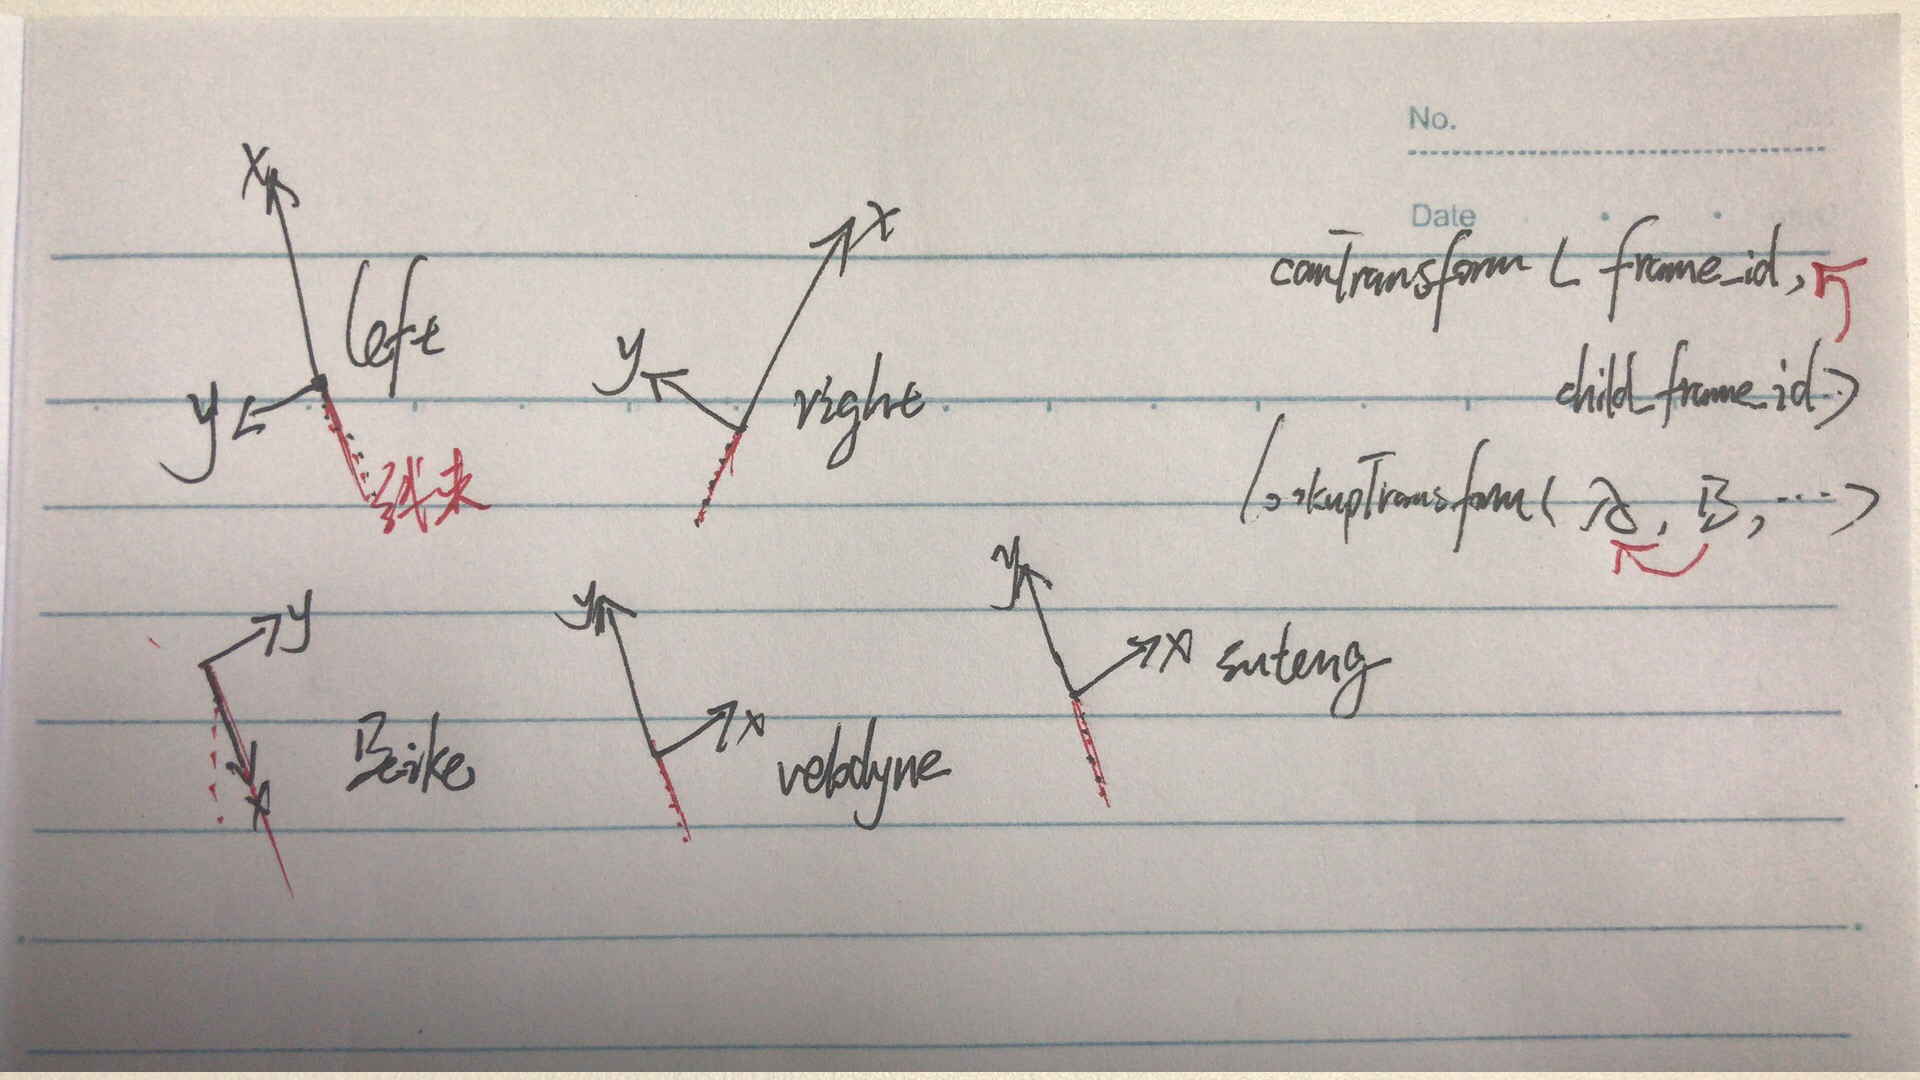 No.
Date
x
y
left
线束
x
y
right
canTransform ( frame_id,
child_frame_id )
lookupTransform( A, B, ... )
y
x
Beike
y
x
velodyne
y
x
suteng